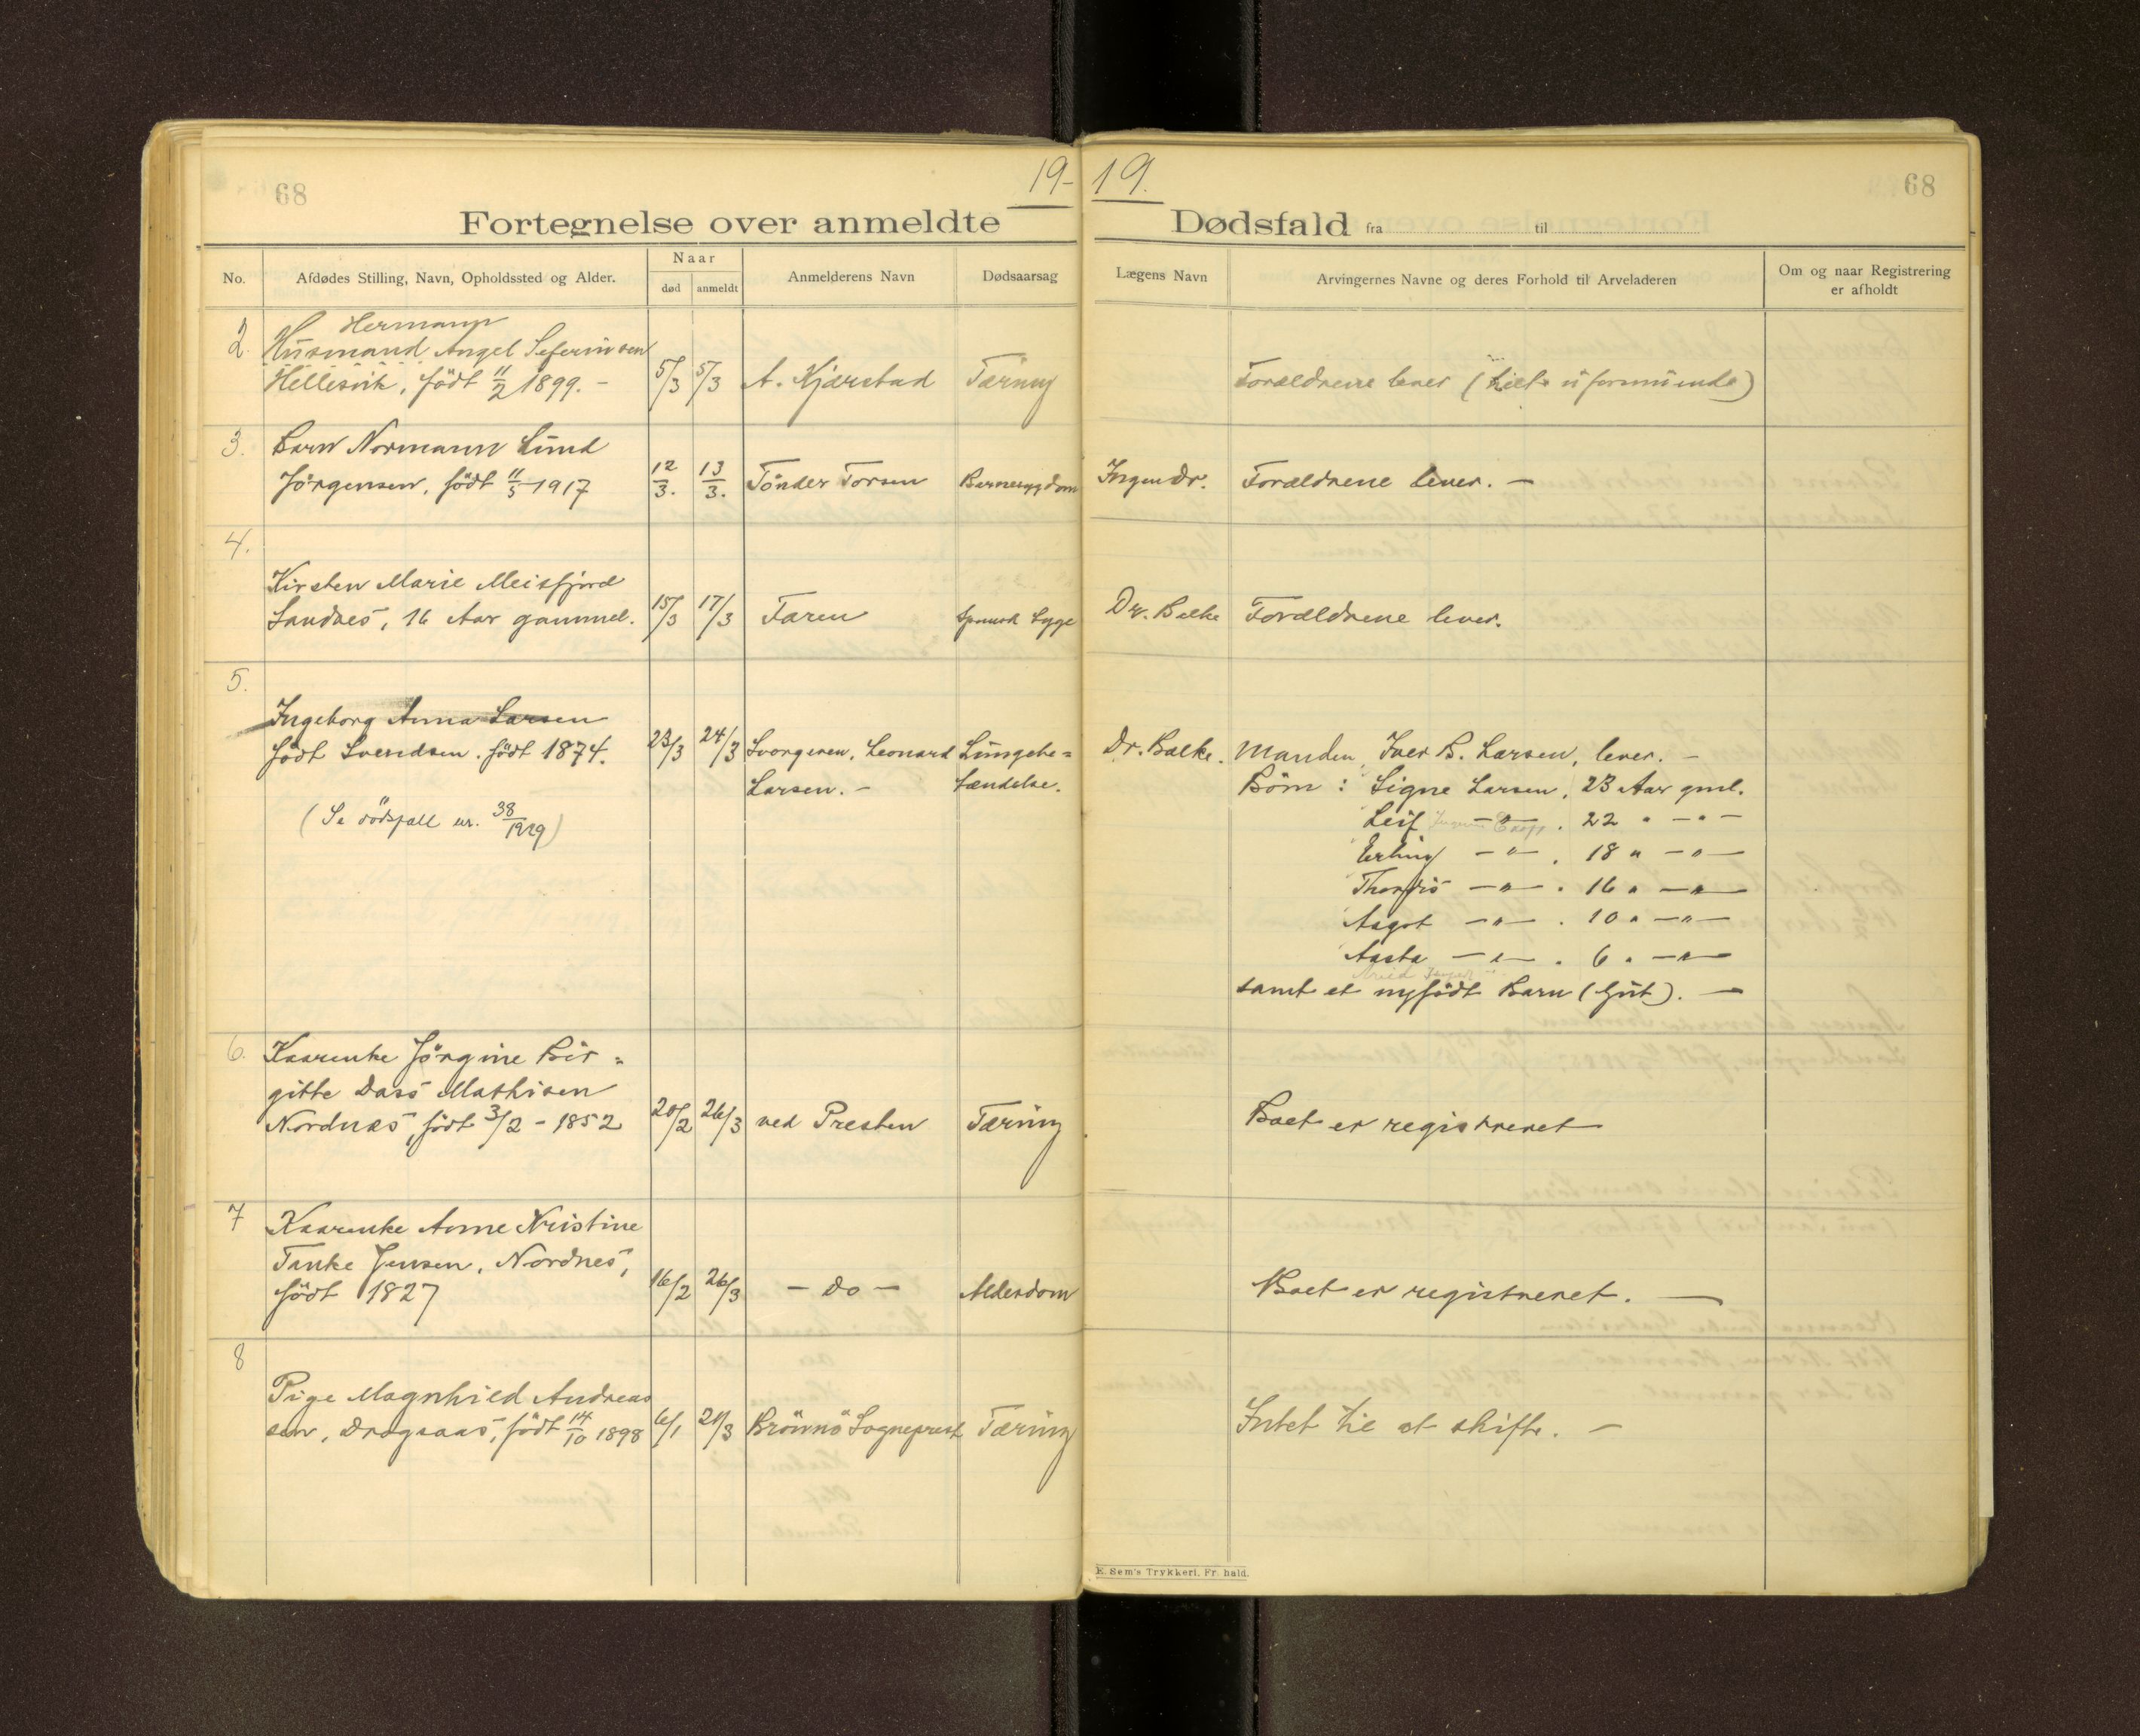 68
19-19.
68
Fortegnelse over anmeldte Dødsfald fra til
No.
Afdødes Stilling, Navn, Opholdssted og Alder.
Naar
død
anmeldt
Anmelderens Navn
Dødsaarsag
Lægens Navn
Arvingernes Navne og deres Forhold til Arveladeren
Om og naar Registrering
er afholdt
Hermann
2. Husmand Angel Seferinsen
Hellesvik, född 11/2 1899. - 5/3 5/3 A. Kjærstad Tæring Forældrene lever (helt uformuende)
3. Barn Normann Lund
Jörgensen, född 11/5 1917 12/3. 13/3. Tönder Torsen Barnesygdom Ingen Dr. Forældrene lever. -
4.
Kirsten Marie Meisfjord
Sandnes, 16 Aar gammel. 15/3 17/3 Faren Spansk Syge Dr. Balke Forældrene lever.
5.
Ingeborg Anna Larsen
född Svendsen. född 1874. 23/3 24/3 Svogeren, Leonard Lungebe= Dr. Balke. Manden, Iver B. Larsen, lever. -
Larsen. - tændelse. Börn: Signe Larsen, 23 Aar gml.
(Se dödsfall nr. 38/1929) Leif -"- . 22 " -"-
Erling -"- . 18 " -"-
Thordis -"- . 16 " -"-
Aagot -"- . 10 " -"-
Aasta -"- . 6 " -"-
samt et nyfödt Barn (Gut). -
6. Kaarenke Jörgine Bir=
gitte Dass Mathisen
Nordnes, född 3/2 - 1852 20/2 26/3 ved Presten Tæring Boet er registreret
7 Kaarenke Anne Kristine
Tanke Jensen, Nordnes,
född 1827 16/2 26/3 - do - Alderdom Boet er registreret. -
8
Pige Magnhild Andreas
sen, Dragsaas, född 14/10 1898 6/1 21/3 Brönnö Sogneprest Tæring Intet til at skifte. -
E. Sem's Trykkeri, Fr. hald.